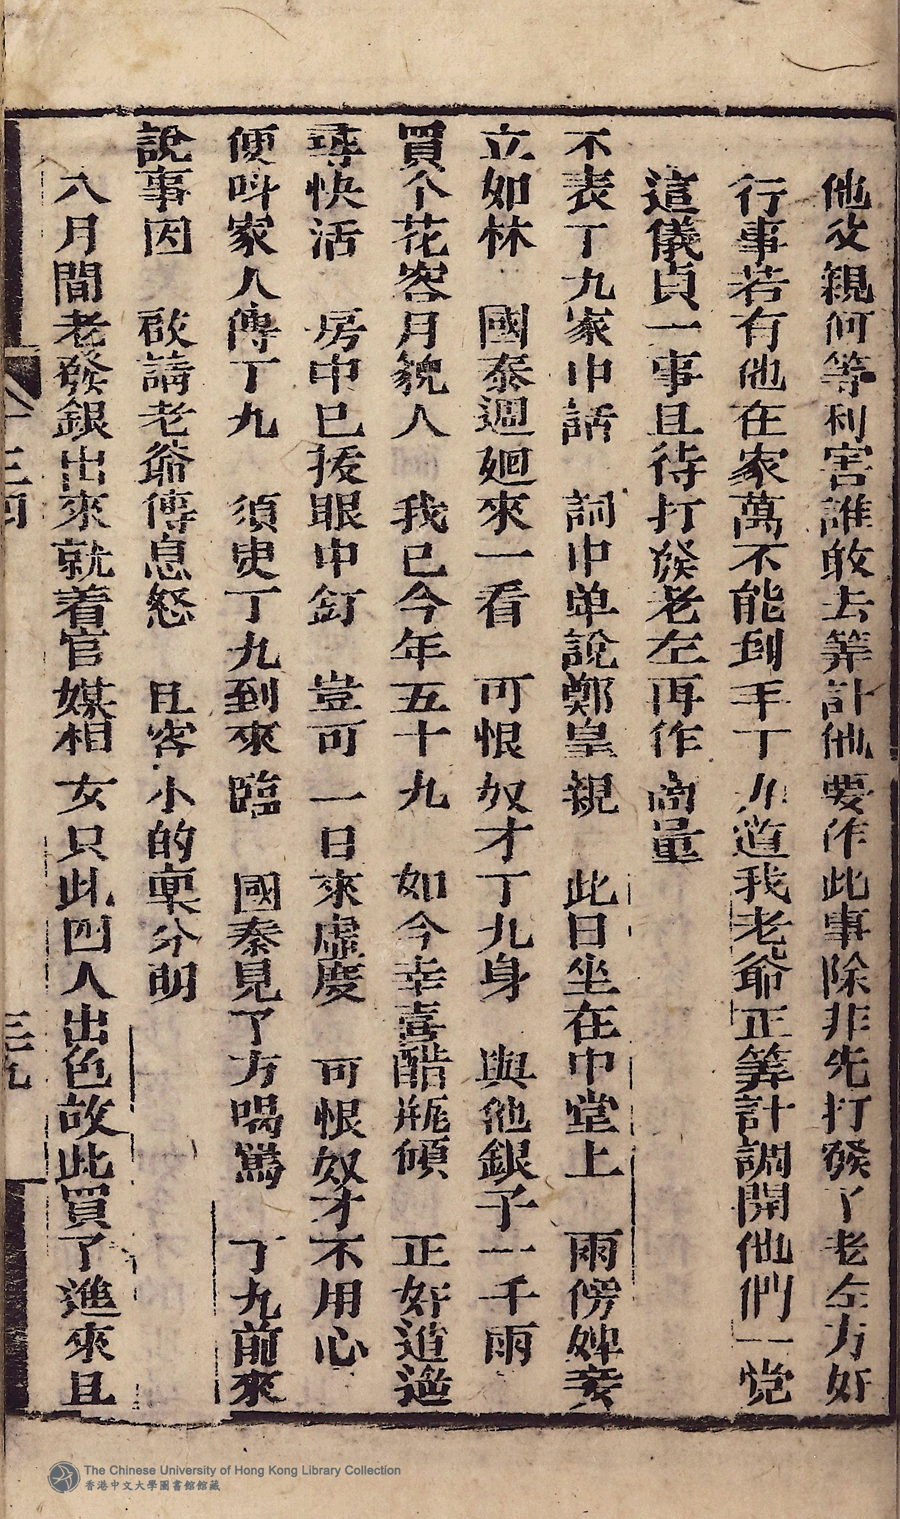 他父親何等利害誰敢去筭計他要作此事除非先打發了老左方好
行事若有他在家萬不能到手丁九道我老爺正筭計調開他們一党
這儀貞一事且待打發老左再作商量
不表丁九家中話　詞中单說鄭皇親　此日坐在中堂上　兩傍婢妾
立如林　國泰週廻來一看　可恨奴才丁九身　與他銀子一千兩
買个花容月貌人　我已今年五十九　如今幸喜醋瓶傾　正好逍遙
尋快活　房中已拔眼中釘　豈可一日來虛度　可恨奴才不用心
便呌家人傳丁九　須臾丁九到來臨　國泰見了方喝駡　丁九前來
說事因　啟請老爺傳息怒　且容小的稟分明
八月間老發銀出來就着官媒相女只此四人出色故此買了進來且
三九
The Chinese University of Hong Kong Library Collection
香港中文大學圖書館館藏